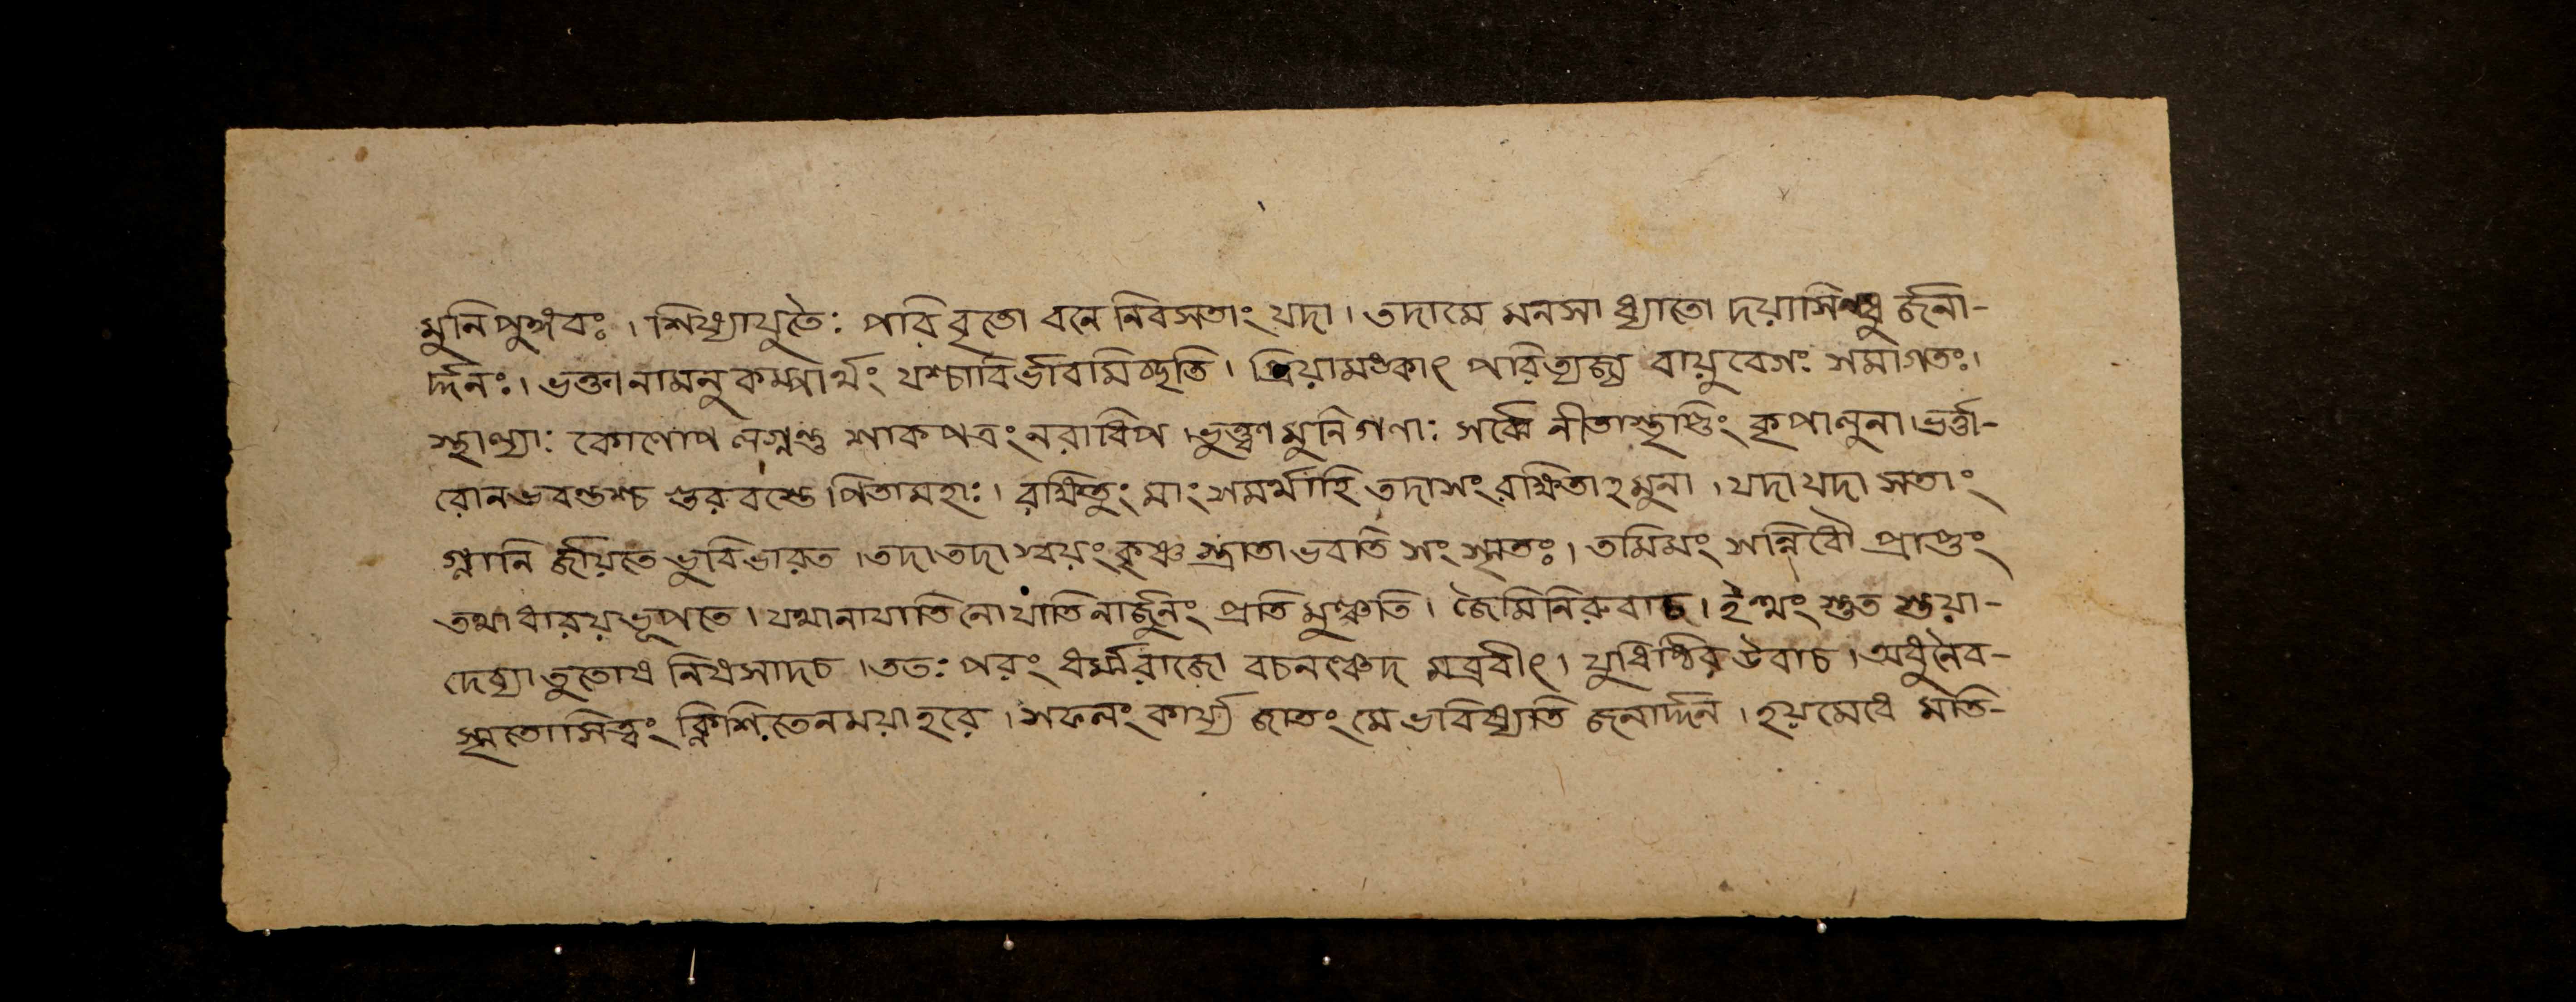 মুনিপুঙ্গবঃ । শিষ্যাযুতৈঃ পরিবৃতো বনে নিবসতাং যদা । তদা মে মনসা ধ্যাতো দয়াসিন্ধু র্জনা-
র্দ্দনঃ । ভক্তানামনুকম্পার্থং যশ্চাবির্ভাবমিচ্ছতি । প্রিয়ামঙ্কাৎ পরিত্যজ্য বায়ুবেগঃ সমাগতঃ ।
স্থাল্যাঃ কোণোপলগ্নন্তু শাকপত্রং নরাধিপ । ভুক্ত্বা মুনিগণাঃ সর্ব্বে নীতাস্তৃপ্তিং কৃপালুনা । ভর্ত্তা-
রোনভবন্তশ্চ গুরবস্তে পিতামহাঃ । রক্ষিতুং মাং সমর্থাহি তদাসংরক্ষিতাহমুনা । যদা যদা সতাং
গ্লানি র্জায়তে ভুবি ভারত । তদা তদা স্বয়ং কৃষ্ণ স্ত্রাতা ভবতি সংস্মৃতঃ । তমিমং সন্নিধৌ প্রাপ্তুং
তথা ধারয় ভূপতে । যথা নাযাতি নো যাতি নার্জুনং প্রতি মুঞ্চতি । জৈমিনিরুবাচ । ইত্থং শ্রুত শ্রুয়া-
দেব্যা তুতোষ নিষসাদচ । ততঃ পরং ধর্ম্মরাজো বচনঞ্চেদ মব্রবীৎ । যুধিষ্ঠির উবাচ । অধুনৈব-
স্মৃতোসিত্বং ক্লিশিতেন ময়া হরে । সফলং কার্য্য জাতং মে ভাবিষ্যতি জনার্দ্দন । হয়মেধে মতি-